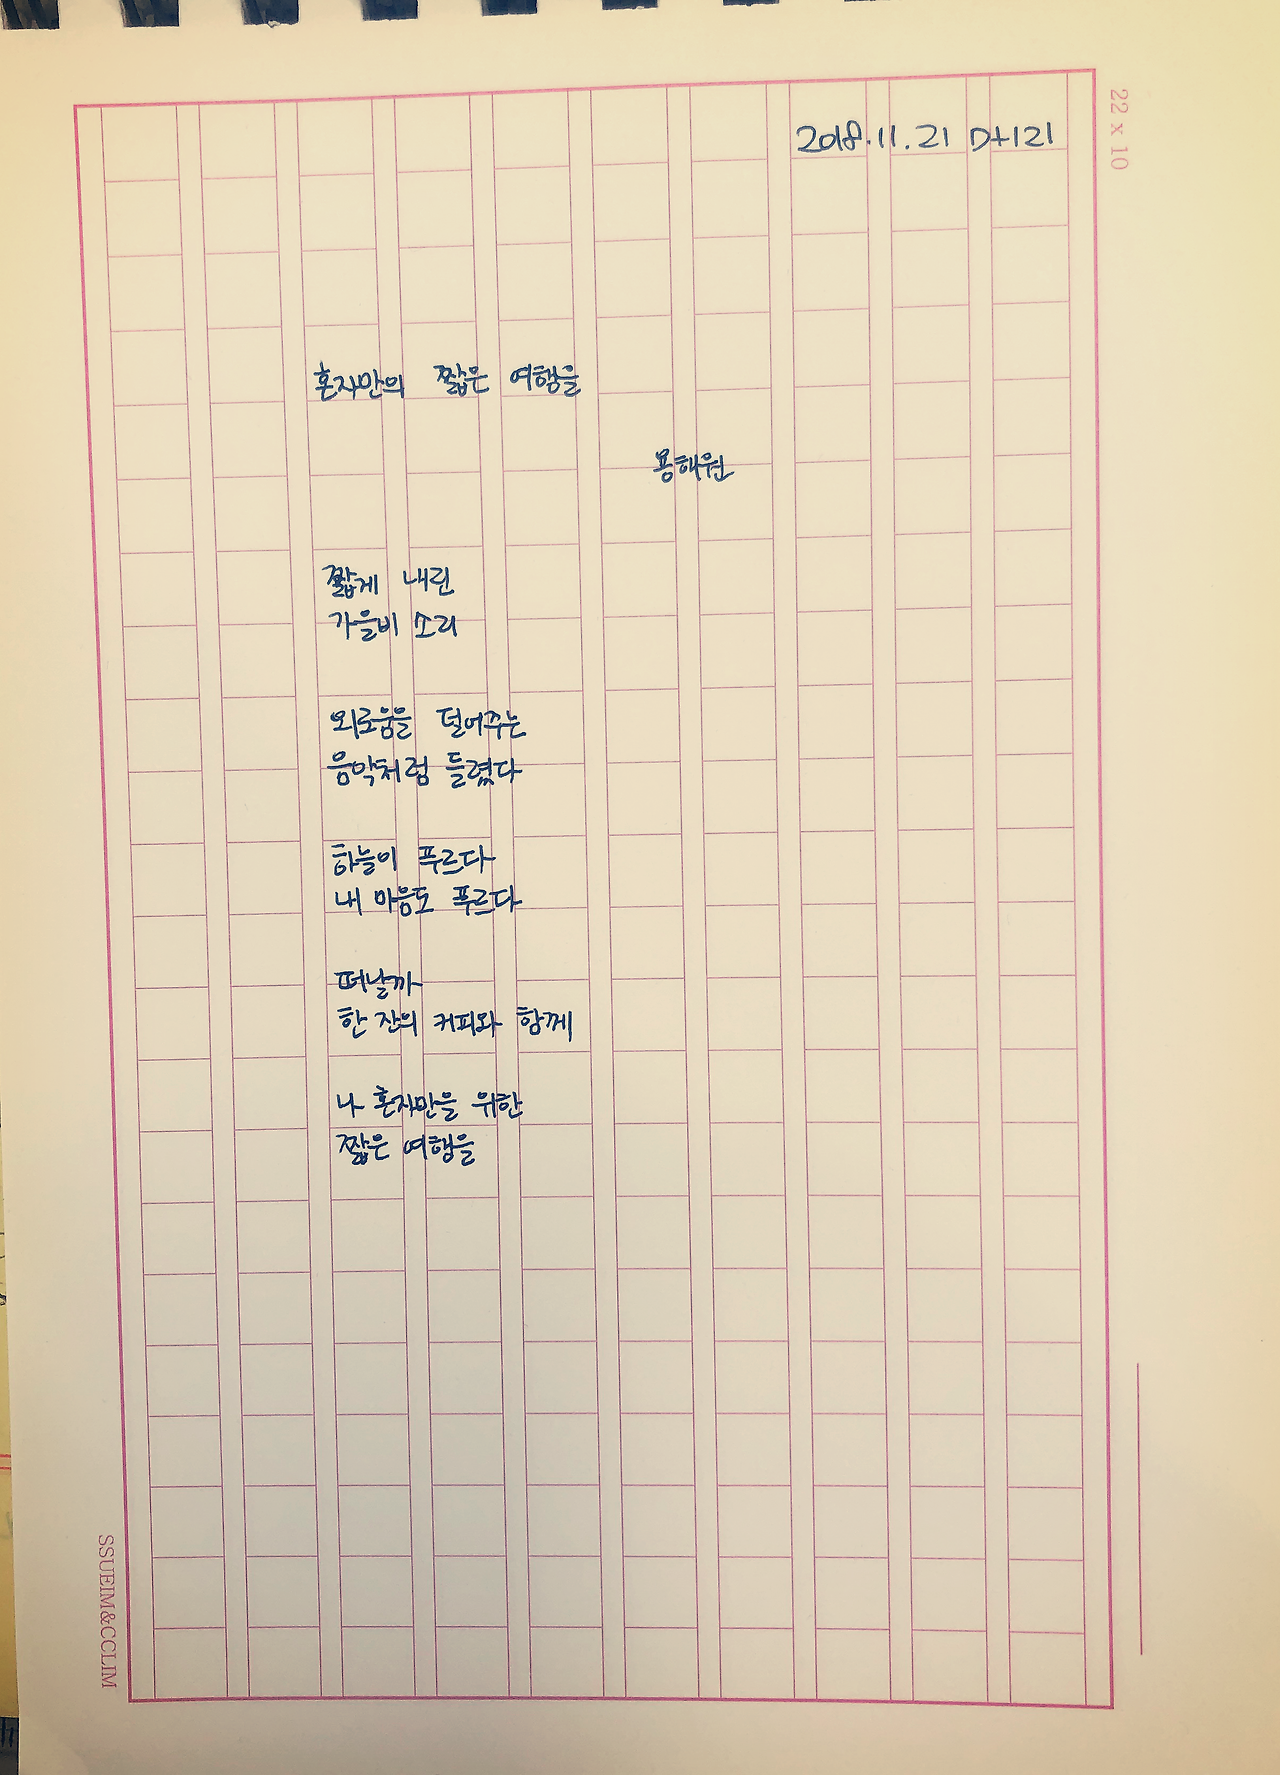 22 x 10
2018.11.21 D+121
혼자만의 짧은 여행을
용해원
짧게 내린
가을비 소리
외로움을 덜어주는
음악처럼 들렸다
하늘이 푸르다
내 마음도 푸르다
떠날까
한 잔의 커피와 함께
나 혼자만을 위한
짧은 여행을
SSUEIM&CCLIM